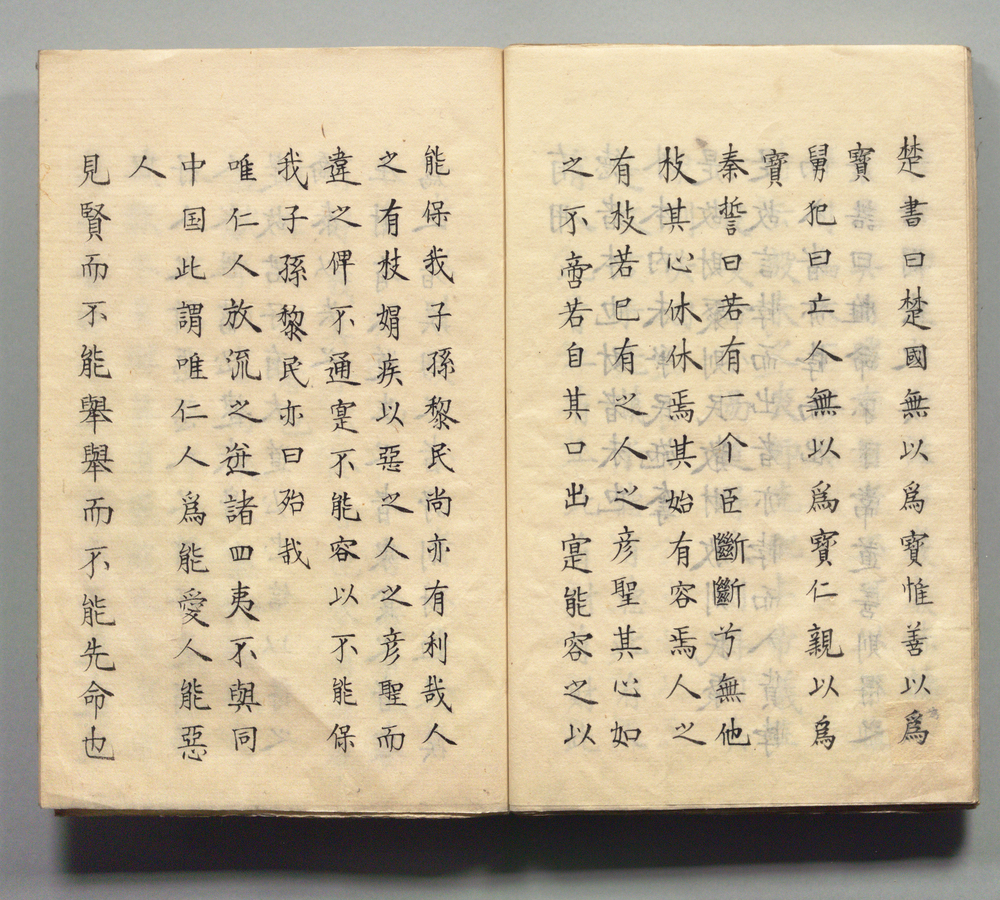 楚書曰楚國無以爲寶惟善以爲
寶
舅犯曰亡人無以爲寶仁親以爲
寶
秦誓曰若有一个臣斷斷兮無他
技其心休休焉其如有容焉人之
有技若己有之人之彦聖其心好
之不啻若自其口出寔能容之以
能保我子孫黎民尚亦有利哉人
之有技媢疾以惡之人之彦聖而
違之俾不通寔不能容以不能保
我子孫黎民亦曰殆哉
唯仁人放流之迸諸四夷不與同
中国此謂唯仁人爲能愛人能惡
人
見賢而不能舉舉而不能先命也